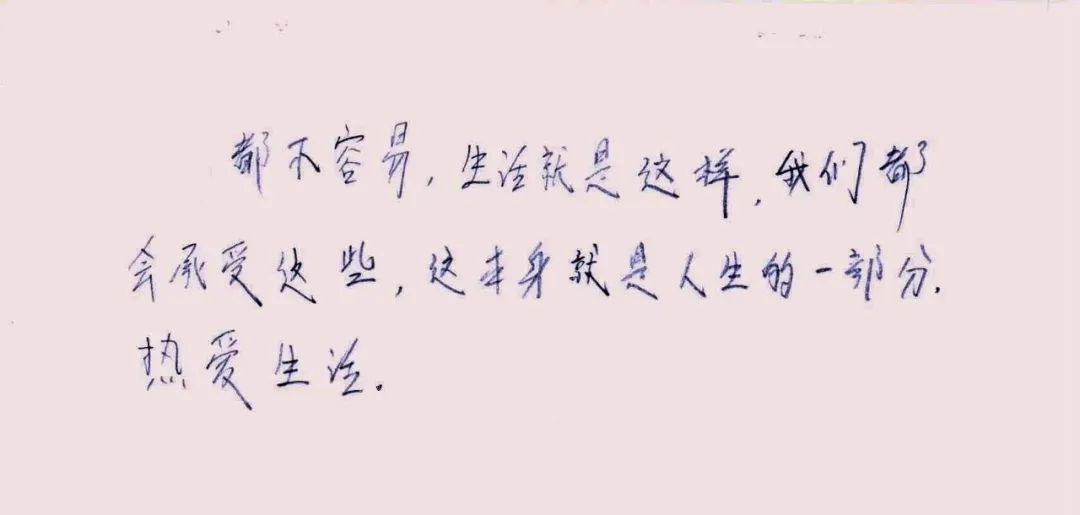 都不容易，生活就是这样，我们都
会承受这些，这本身就是人生的一部分.
热爱生活.